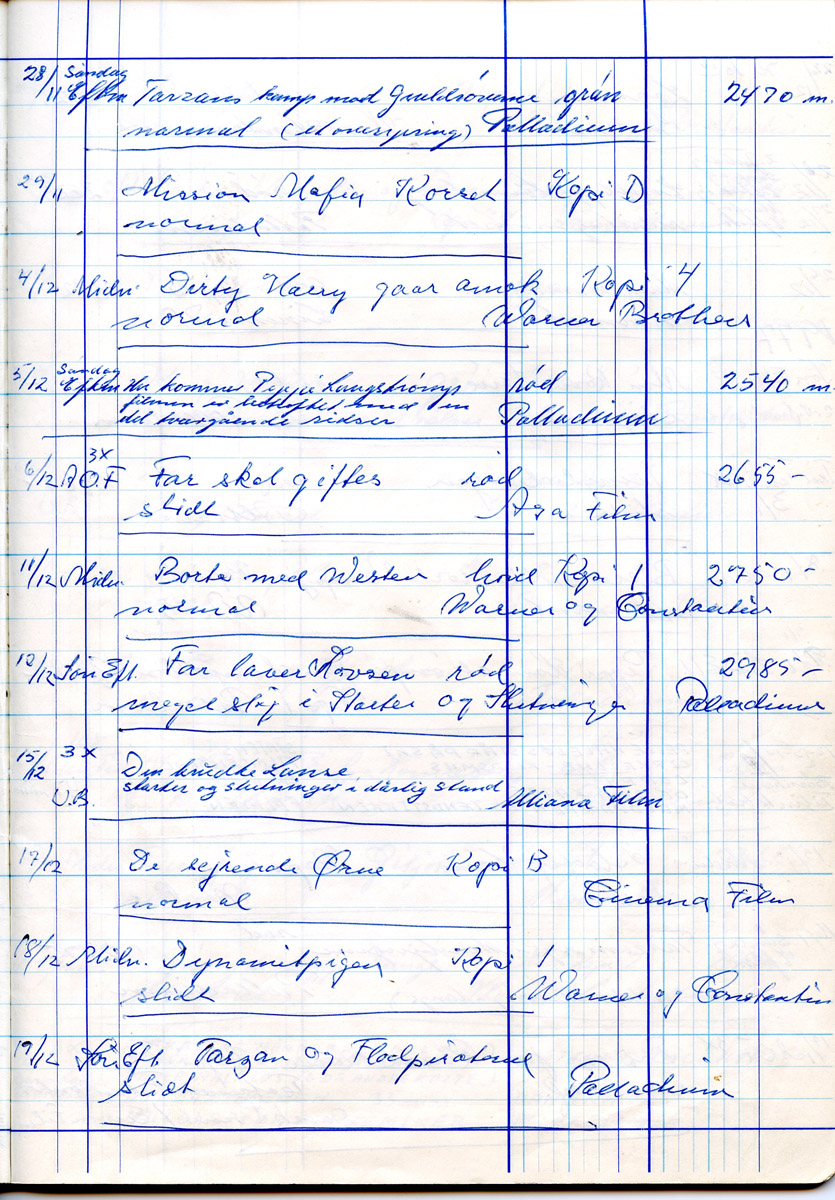 28/11 Søndag
Eftm Tarzans kamp mod Guldrøverne grøn 2470 m.
normal (et overspring) Palladium
29/11 Mission Mafia Korset Kopi D
normal
4/12 Midn. Dirty Harry gaar amok Kopi 4
normal Warner Brothers
5/12 Søndag
Eftm Her kommer Pippi Langstrømpe rød 2540 m.
filmen er behæftet med en
del tværgående ridser Palladium
6/12 3X
A.O.F Far skal giftes rød 2655 -
slidt Asa Film
11/12 Midn. Borte med Westen hvid Kopi 1 2750 -
normal Warner og Constantin
12/12 Søn Eft. Far laver Sovsen rød 2985 -
meget støj i Starter og Slutninger Palladium
15/12 3X Den brudte Lanse
starter og slutninger i dårlig stand
U.B. Alliana Film
17/12 De sejrende Ørne Kopi B
normal Cinema Film
18/12 Midn. Dynamitpigen Kopi 1
slidt Warner og Constantin
19/12 Søn Eft Tarzan og Flodpiraterne
slidt Palladium